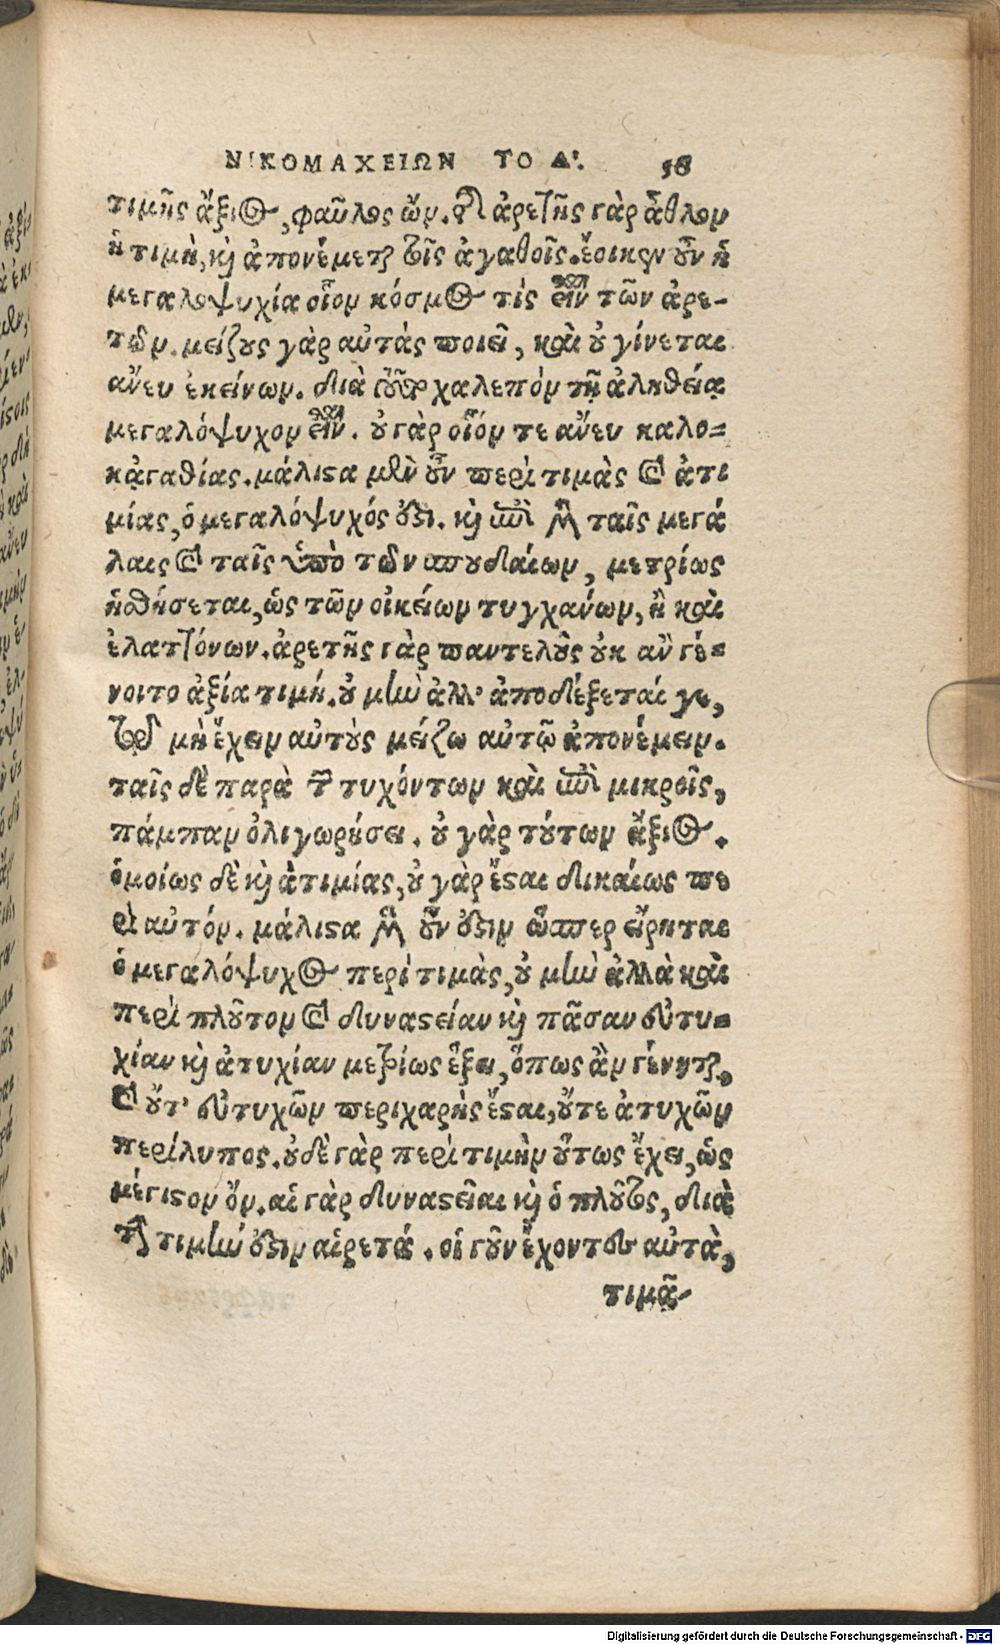 ΝΙΚΟΜΑΧΕΙΩΝ ΤΟ Δ'. 58
τιμῆς ἄξιος, φαῦλος ὤν. τῆς ἀρετῆς γὰρ ἆθλον
ἡ τιμὴ, καὶ ἀπονέμεται τοῖς ἀγαθοῖς. ἔοικεν οὖν ἡ
μεγαλοψυχία οἷον κόσμος τις εἶναι τῶν ἀρε-
τῶν. μείζους γὰρ αὐτάς ποιεῖ, καὶ οὐ γίνεται
ἄνευ ἐκείνων. διὰ τοῦτο χαλεπὸν τῇ ἀληθείᾳ
μεγαλόψυχον εἶναι. οὐ γὰρ οἷόν τε ἄνευ καλο-
κἀγαθίας. μάλιστα μὲν οὖν περὶ τιμὰς καὶ ἀτι
μίας, ὁ μεγαλόψυχός ἐστι. καὶ ἐπὶ μὲν ταῖς μεγά
λαις καὶ ταῖς ὑπὸ τῶν σπουδαίων, μετρίως
ἡσθήσεται, ὡς τῶν οἰκείων τυγχάνων, ἢ καὶ
ἐλαττόνων. ἀρετῆς γὰρ παντελοῦς οὐκ ἂν γέ-
νοιτο ἀξία τιμή. οὐ μὴν ἀλλ' ἀποδέξεταί γε,
τῷ μὴ ἔχειν αὐτοὺς μείζω αὐτῷ ἀπονέμειν.
ταῖς δὲ παρὰ τῶν τυχόντων καὶ ἐπὶ μικροῖς,
πάμπαν ὀλιγωρήσει. οὐ γὰρ τούτων ἄξιος.
ὁμοίως δὲ καὶ ἀτιμίας, οὐ γὰρ ἔσται δικαίως πε
ρὶ αὐτόν. μάλιστα μὲν οὖν ἐστιν ὥσπερ εἴρηται
ὁ μεγαλόψυχος περὶ τιμὰς, οὐ μὴν ἀλλὰ καὶ
περὶ πλοῦτον καὶ δυναστείαν καὶ πᾶσαν εὐτυ-
χίαν καὶ ἀτυχίαν μετρίως ἕξει, ὅπως ἂν γένηται,
καὶ οὔτ' εὐτυχῶν περιχαρὴς ἔσται, οὔτε ἀτυχῶν
περίλυπος. οὐδὲ γὰρ περὶ τιμὴν οὕτως ἔχει, ὡς
μέγιστον ὄν. αἱ γὰρ δυναστεῖαι καὶ ὁ πλοῦτος, διὰ
τὴν τιμήν ἐστιν αἱρετά. οἱ γοῦν ἔχοντες αὐτὰ,
τιμᾶ-
Digitalisierung gefördert durch die Deutsche Forschungsgemeinschaft - DFG